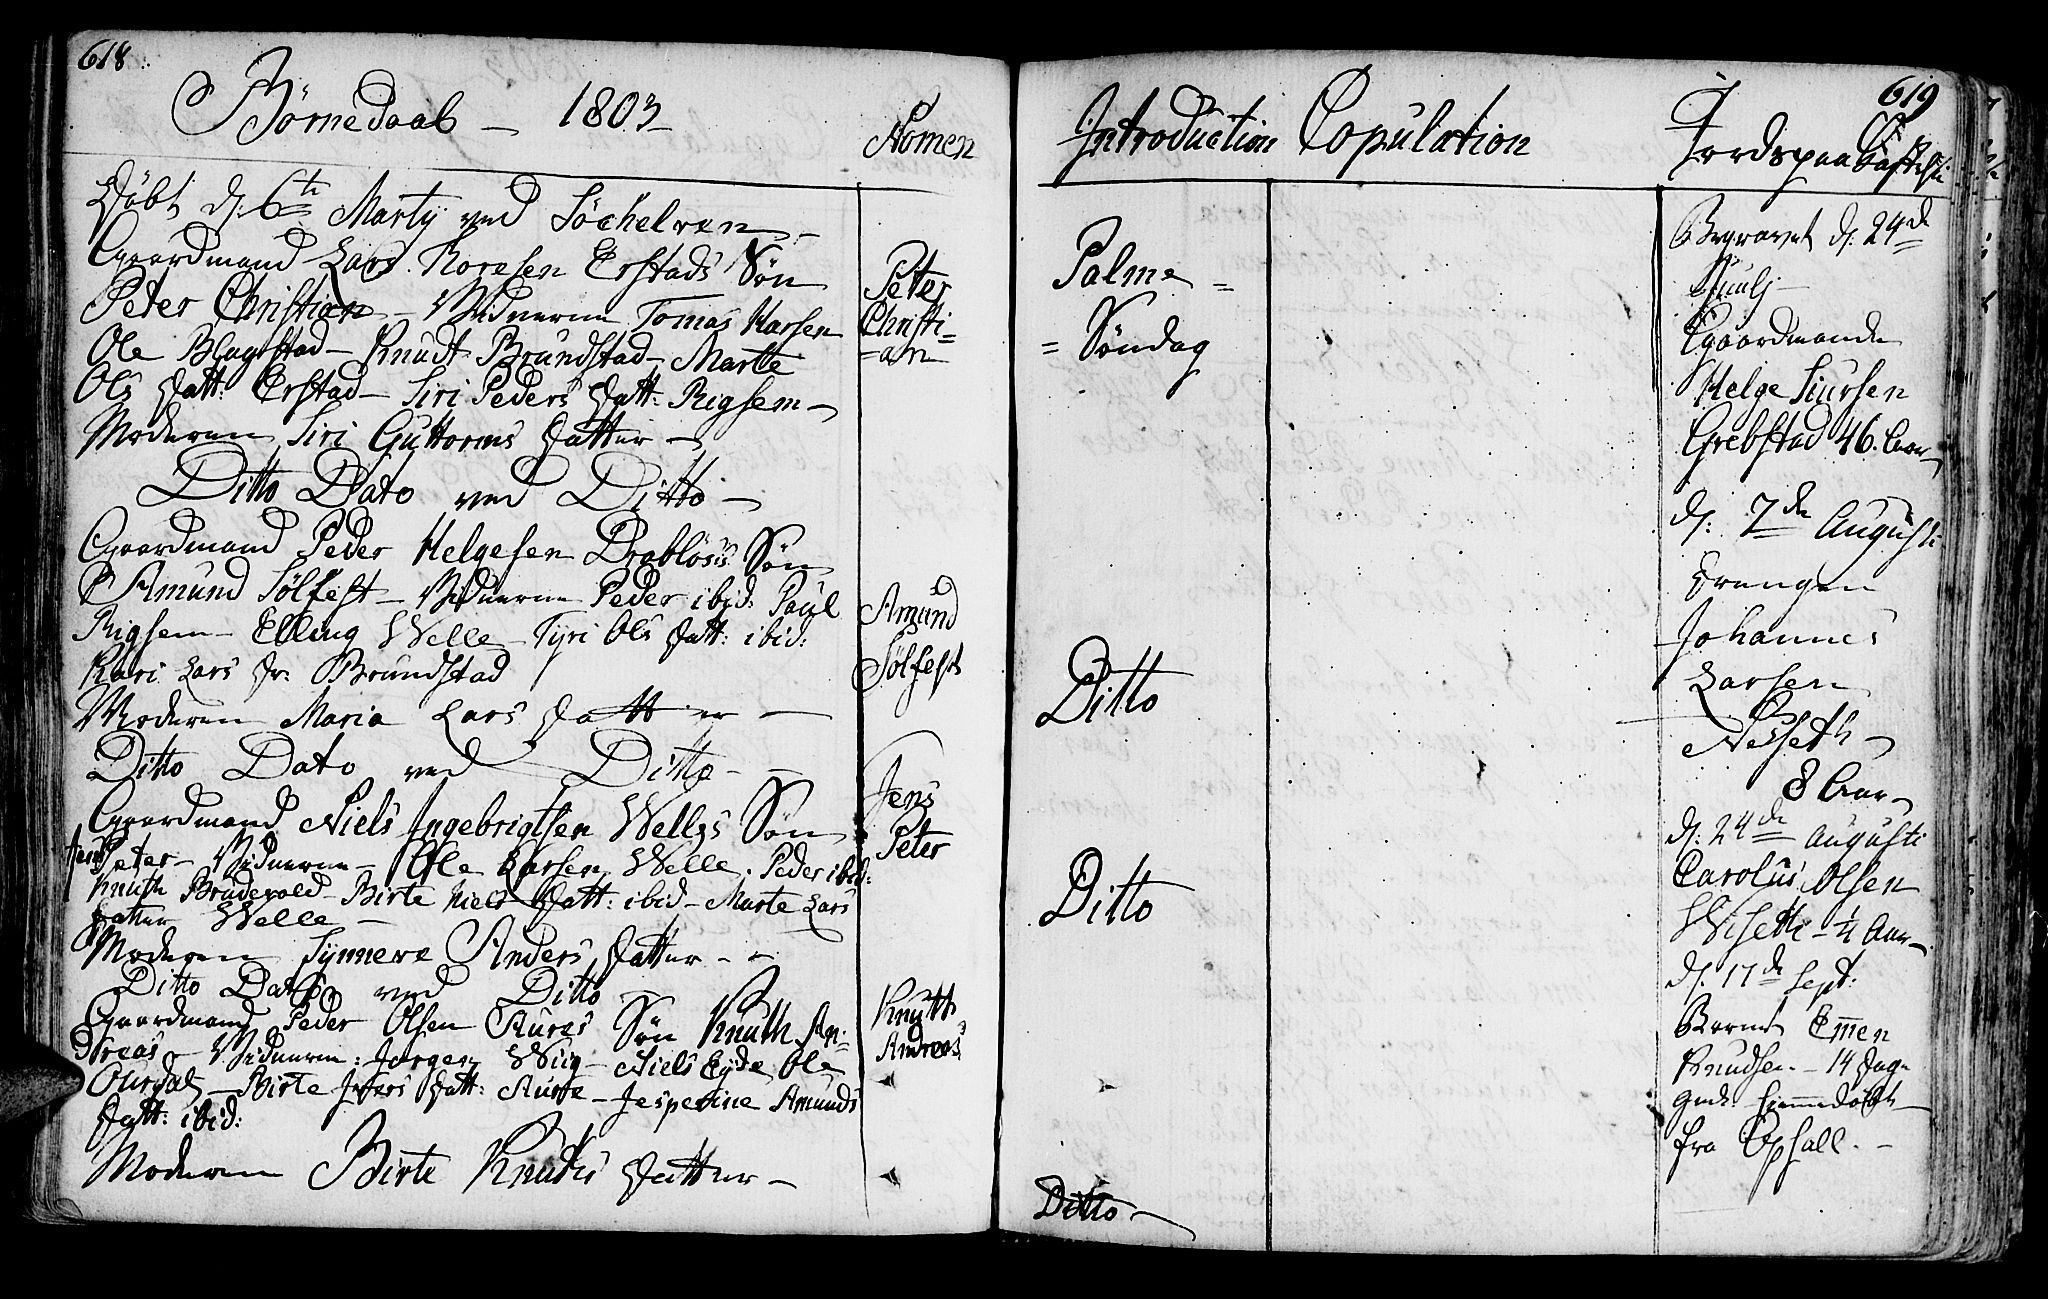 618.
Börnedaab - 1803
Nomen
Døbt d: 6te Martij ved Söchelven -
Gaardmand Lars Koresen Erstads Søn
Peter Christian - Vidnerne Tomas Karsen
Ole Blagstad - Knudt Brundstad - Marte
Ols Datt: Erstad - Siri Peders Datt: Rigsem -
Moderen Siri Guttorms Datter -
Peter
Christi=
=an
Ditto Dato ved Ditto -
Gaardmand Peder Helgesen Drabløsis Søn
Amund Sølfest - Vidnerne Peder ibid: Paul
Rigsem - Elling Welle - Tyri Ols Datt: ibid:
Kari Lars Dr. Brundstad
Moderen Maria Lars Datter -
Amund
Sølfest
Ditto Dato ved Ditto -
Gaardmand Niels Ingebrigtsen Welles Søn
Jens Peter - Vidnerne - Ole Larsen Welle. Peder ibid:
Knuth Brudevold - Birte Niels Datt: ibid - Marte Lars
Datter Welle -
Moderen Synneve Anders Datter - -
Jens
Peter
Ditto Dato ved Ditto -
Gaardmand Peder Olsen Aures Søn Knuth An=
dreas - Vidnerne: Jørgen Wiig - Niels Eyde Ole
Datt: - Birte Ivers Datt: Aure - Jesperine Amunds
Datt: ibid:
Moderen Birte Knuds Datter -
Knutt
Andreas
619
Introduction
Copulation
Jordspaakastelse
Palme =
= Søndag
Ditto
Ditto
Ditto -
Begravet d: 24de
Juulj -
Gaardmanden
Helge Siursen
Grebstad 46. Aar -
d: 7de Augusti
Drengen
Johannes
Larsen
Nesseth -
8 Aar -
d: 24de Augusti
Carolus Olsen
Wiseth - 4 Aar -
d: 17de Sept:
Barnet Em̄en
Knudsen - 14 Dag.
Hiemmedøbt
fra Opsall. -